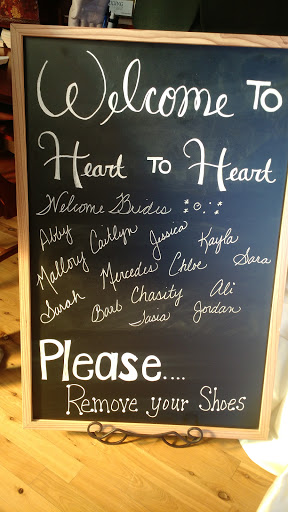 Welcome To
Heart To Heart
Welcome Brides
Abby Caitlyn Jessica Kayla
Mallory Mercedes Chloe Sara
Sarah Barb Chasity Ali
Tasia Jordan
Please....
Remove your Shoes